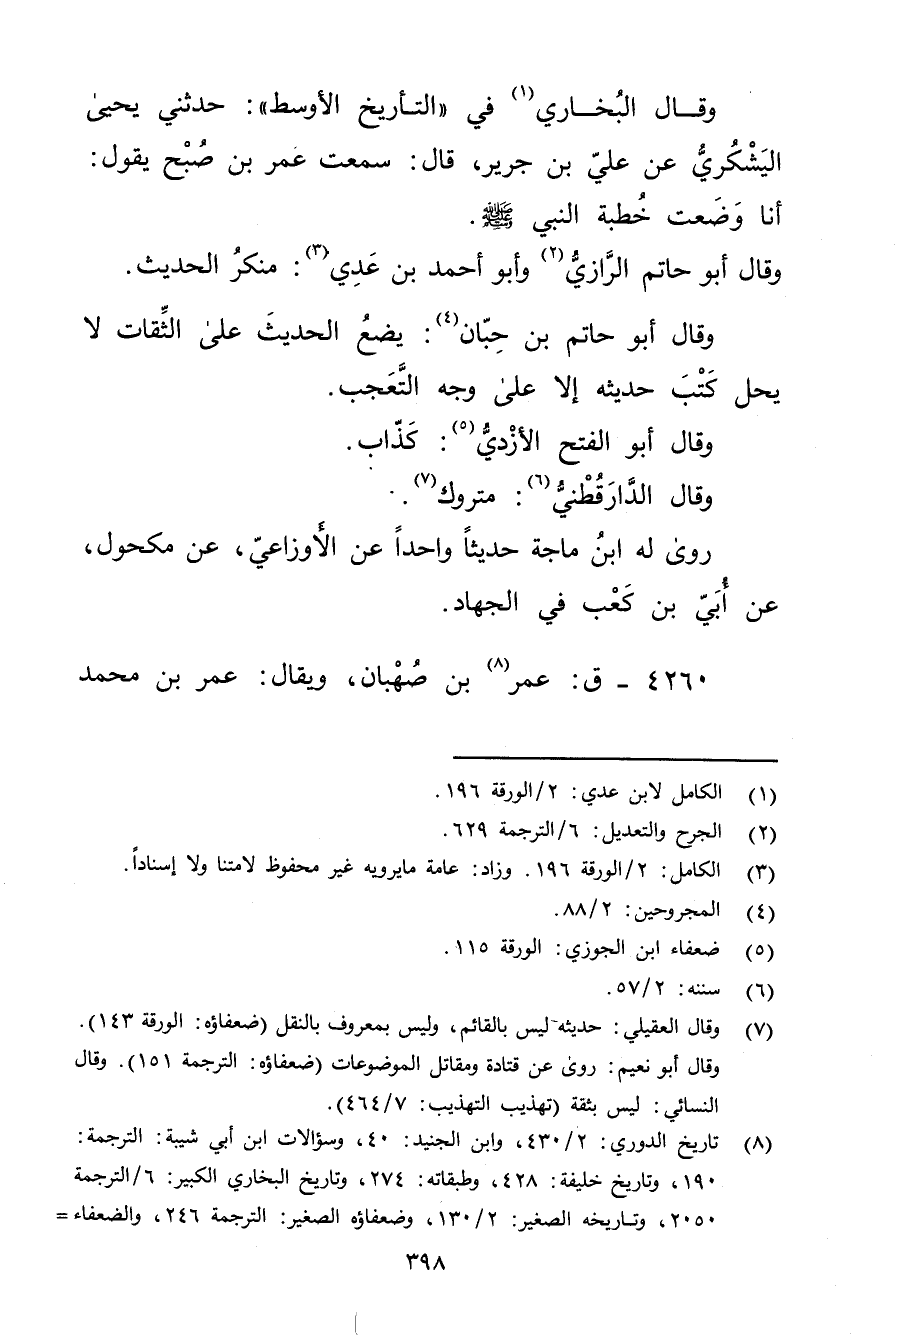 وقـــال البُخـــاري(١) في «التـأريخ الأوسط»: حدثني يحيىٰ
اليَشْكُريُّ عن عليّ بن جرير، قال: سمعت عمر بن صُبْح يقول:
أنا وَضَعت خُطبة النبي ﷺ.
وقال أبو حاتم الرَّازيُّ(٢) وأبو أحمد بن عَدِي(٣): منكرُ الحديث.
وقال أبو حاتم بن حِبّان(٤): يضعُ الحديثَ علىٰ الثِّقات لا
يحل كَتْبَ حديثه إلا علىٰ وجه التَّعَجب.
وقال أبو الفتح الأزْديُّ(٥): كَذّاب.
وقال الدَّارَقُطْنيُّ(٦): متروك(٧).
روىٰ له ابنُ ماجة حديثاً واحداً عن الأَوزاعيّ، عن مكحول،
عن أُبَيّ بن كَعْب في الجهاد.
٤٢٦٠ ـ ق: عمر(٨) بن صُهْبان، ويقال: عمر بن محمد
(١) الكامل لابن عدي: ٢/الورقة ١٩٦.
(٢) الجرح والتعديل: ٦/الترجمة ٦٢٩.
(٣) الكامل: ٢/الورقة ١٩٦. وزاد: عامة مايرويه غير محفوظ لامتنا ولا إسناداً.
(٤) المجروحين: ٨٨/٢.
(٥) ضعفاء ابن الجوزي: الورقة ١١٥.
(٦) سننه: ٥٧/٢.
(٧) وقال العقيلي: حديثه ليس بالقائم، وليس بمعروف بالنقل (ضعفاؤه: الورقة ١٤٣).
وقال أبو نعيم: روىٰ عن قتادة ومقاتل الموضوعات (ضعفاؤه: الترجمة ١٥١). وقال
النسائي: ليس بثقة (تهذيب التهذيب: ٤٦٤/٧).
(٨) تاريخ الدوري: ٤٣٠/٢، وابن الجنيد: ٤٠، وسؤالات ابن أبي شيبة: الترجمة:
١٩٠، وتاريخ خليفة: ٤٢٨، وطبقاته: ٢٧٤، وتاريخ البخاري الكبير: ٦/الترجمة
٢٠٥٠، وتـاريخه الصغير: ١٣٠/٢، وضعفاؤه الصغير: الترجمة ٢٤٦، والضعفاء =
٣٩٨